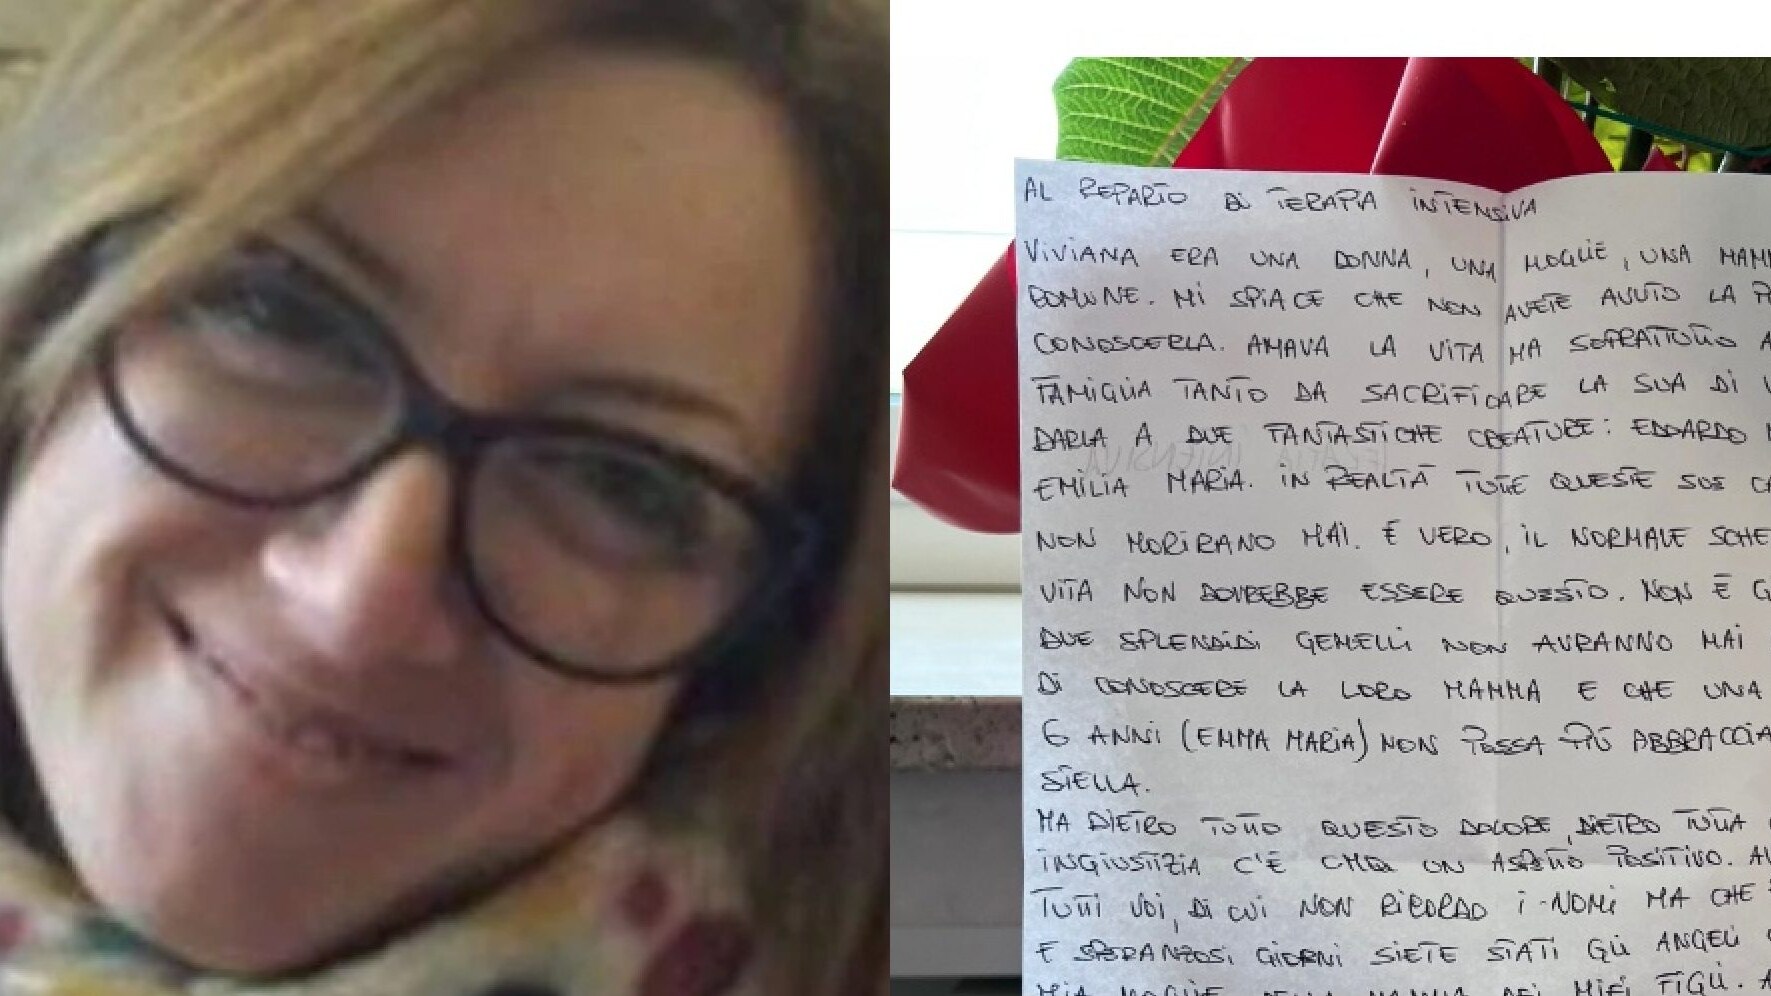 AL REPARTO DI TERAPIA INTENSIVA
VIVIANA ERA UNA DONNA, UNA MOGLIE, UNA MAM
COMUNE. MI SPIACE CHE NON AVETE AVUTO LA
CONOSCERLA. AMAVA LA VITA MA SOPRATTUTTO A
FAMIGLIA TANTO DA SACRIFICARE LA SUA DI
DARLA A DUE FANTASTICHE CREATURE: EDOARDO
EMILIA MARIA. IN REALTÀ TUTTE QUESTE SUE
NON MORIRANO MAI. È VERO, IL NORMALE SCHE
VITA NON DOVREBBE ESSERE QUESTO. NON È G
DUE SPLENDIDI GEMELLI NON AVRANNO MAI
DI CONOSCERE LA LORO MAMMA E CHE UNA
6 ANNI (EMMA MARIA) NON POSSA PIÙ ABBRACCIA
STELLA.
MA DIETRO TUTTO QUESTO DOLORE, DIETRO TUTTA
INGIUSTIZIA C'È UN ASPETTO POSITIVO.
TUTTI VOI, DI CUI NON RICORDO I NOMI MA CHE
E SPERANZOSI GIORNI SIETE STATI GLI ANGELI
MIA MOGLIE DELLA MAMMA DEI MIEI FIGLI.